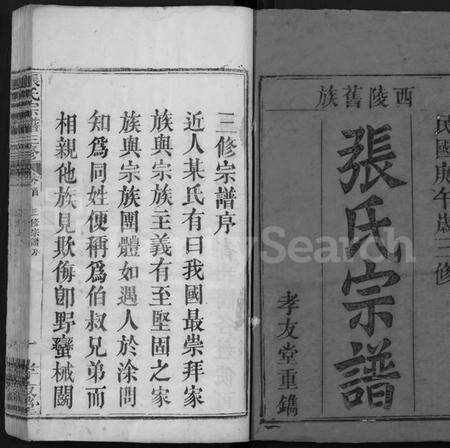 西陵舊族
民國庚午歲三修
張氏宗譜
孝友堂重鐫
三修宗譜序
近人某氏有曰我國最崇拜家
族與宗族主義有至堅固之家
族與宗族團體如遇人於涂問
知爲同姓便稱爲伯叔兄弟而
相親他族見欺侮卽野蠻械鬭
張氏宗譜
三修宗譜序